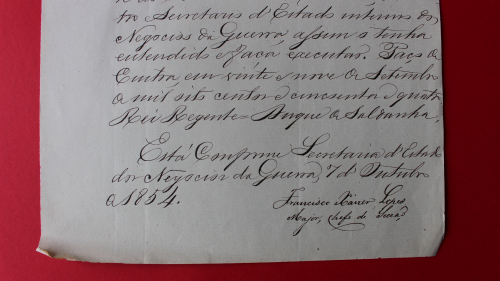 tro Secretario d'Estado interino dos
Negocios da Guerra assim o tenha
entendido e faça executar. Paço de
Cintra em vinte e nove de Setembro
de mil oito centos e cincoenta e quatro
Rei Regente = Duque de Saldanha.
Está Conforme Secretaria d'Estado
dos Negocios da Guerra, 7 d'Outubro
de 1854.
Francisco Xavier Lopes
Major, Chefe de Secção